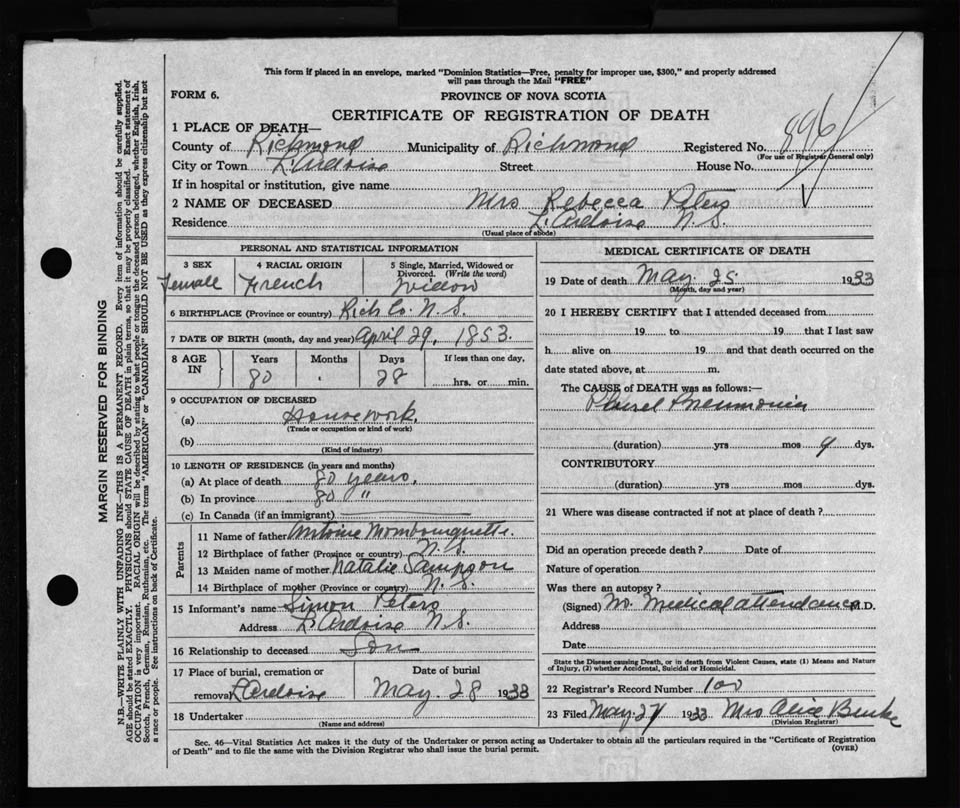 This form if placed in an envelope, marked "Dominion Statistics—Free, penalty for improper use, $300," and properly addressed
will pass through the Mail "FREE"
FORM 6.
PROVINCE OF NOVA SCOTIA
CERTIFICATE OF REGISTRATION OF DEATH
896
1 PLACE OF DEATH—
County of Richmond Municipality of Richmond Registered No.
(For use of Registrar General only)
City or Town L'Ardoise Street House No.
If in hospital or institution, give name
2 NAME OF DECEASED Mrs Rebecca Peters
Residence L'Ardoise N.S.
(Usual place of abode)
PERSONAL AND STATISTICAL INFORMATION
3 SEX 4 RACIAL ORIGIN 5 Single, Married, Widowed or
Divorced. (Write the word)
Female French Widow
6 BIRTHPLACE (Province or country) Rich Co. N.S.
7 DATE OF BIRTH (month, day and year) April 29, 1853.
8 AGE IN Years Months Days If less than one day,
80 28 hrs. or min.
9 OCCUPATION OF DECEASED
(a) Housework.
(Trade or occupation or kind of work)
(b)
(Kind of industry)
10 LENGTH OF RESIDENCE (in years and months)
(a) At place of death 80 years.
(b) In province 80 "
(c) In Canada (if an immigrant)
Parents
11 Name of father Antoine Mombourquette.
12 Birthplace of father (Province or country) N.S.
13 Maiden name of mother Natalie Sampson
14 Birthplace of mother (Province or country) N.S.
15 Informant's name Simon Peters
Address L'Ardoise N.S.
16 Relationship to deceased Son
17 Place of burial, cremation or Date of burial
removal L'Ardoise May 28 1933
18 Undertaker
(Name and address)
MEDICAL CERTIFICATE OF DEATH
19 Date of death May 25 1933
(Month, day and year)
20 I HEREBY CERTIFY that I attended deceased from
19 to 19 that I last saw
h alive on 19 and that death occurred on the
date stated above, at m.
The CAUSE of DEATH was as follows:—
Pneumonia
(duration) yrs mos 9 dys.
CONTRIBUTORY
(duration) yrs mos dys.
21 Where was disease contracted if not at place of death?
Did an operation precede death? Date of
Nature of operation
Was there an autopsy?
(Signed) No. Medical attendance M.D.
Address
Date
State the Disease causing Death, or in death from Violent Causes, state (1) Means and Nature
of Injury, (2) whether Accidental, Suicidal or Homicidal.
22 Registrar's Record Number 100
23 Filed May 27 1933 Mrs Alice Burke
(Division Registrar)
Sec. 46—Vital Statistics Act makes it the duty of the Undertaker or person acting as Undertaker to obtain all the particulars required in the "Certificate of Registration
of Death" and to file the same with the Division Registrar who shall issue the burial permit.
(OVER)
MARGIN RESERVED FOR BINDING
N.B.—WRITE PLAINLY WITH UNFADING INK—THIS IS A PERMANENT RECORD. Every item of information should be carefully supplied.
AGE should be stated EXACTLY. PHYSICIANS should STATE CAUSE OF DEATH in plain terms, so that it may be properly classified. Exact statement of
OCCUPATION is very important. RACIAL ORIGIN will be described by stating to what people or tongue the deceased person belonged, whether English, Irish,
Scotch, French, German, Russian, Ruthenian, etc. The terms "AMERICAN" or "CANADIAN" SHOULD NOT BE USED as they express citizenship but not
a race or people. See instructions on back of Certificate.